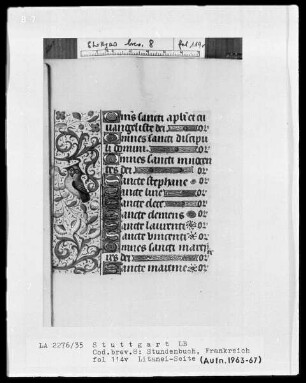 Stuttgart brev. 8 fol 114v
Omnes sancti apl'ici et eu
uangeliste dei or
Omnes sancti discipu
li domini or
Omnes sancti innocen
tes dei or
Sancte stephane or
Sancte line or
Sancte clete or
Sancte clemens or
Sancte laurenti or
Sancte vincenti or
Omnes sancti marti
res dei or
Sancte martine or
LA 2276/35 Stuttgart LB
Cod.brev.8: Stundenbuch, Frankreich
fol 114v Litanei-Seite (Aufn. 1963-67)